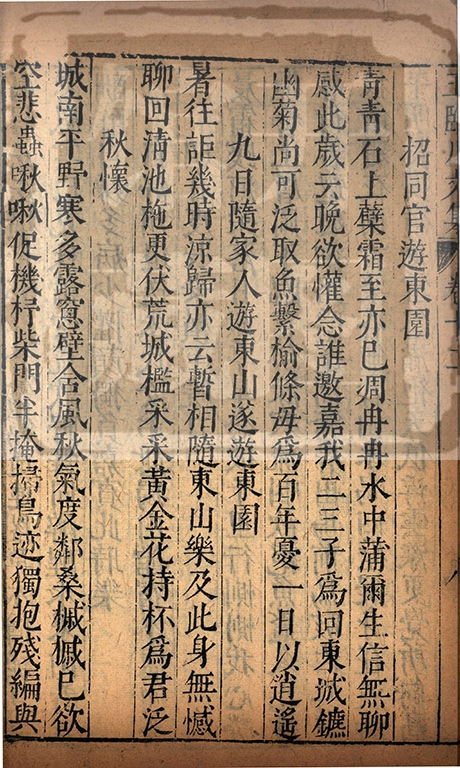 王臨川文集 卷十二 八
招同官遊東園
青青石上蘗霜至亦已凋冉冉水中蒲爾生信無聊
感此歲云晚欲懽念誰邀嘉我二三子為回東城鑣
幽菊尚可泛取魚繫榆條毋為百年憂一日以逍遙
九日隨家人遊東山遂遊東園
暑往詎幾時涼歸亦云暫相隨東山樂及此身無憾
聊回清池柂更伏荒城檻采采黃金花持杯為君泛
秋懷
城南平野寒多露窻壁含風秋氣度鄰桑槭槭已欲
空悲蟲啾啾促機杼柴門半掩掃鳥迹獨抱殘編與